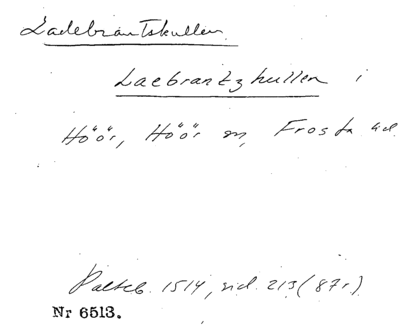 Ladebrantskullen
Laebrantzkullen i
Höör, Höör sn, Frosta hd.
Palteb. 1514, sid. 213 (87r)
Nr 6513.